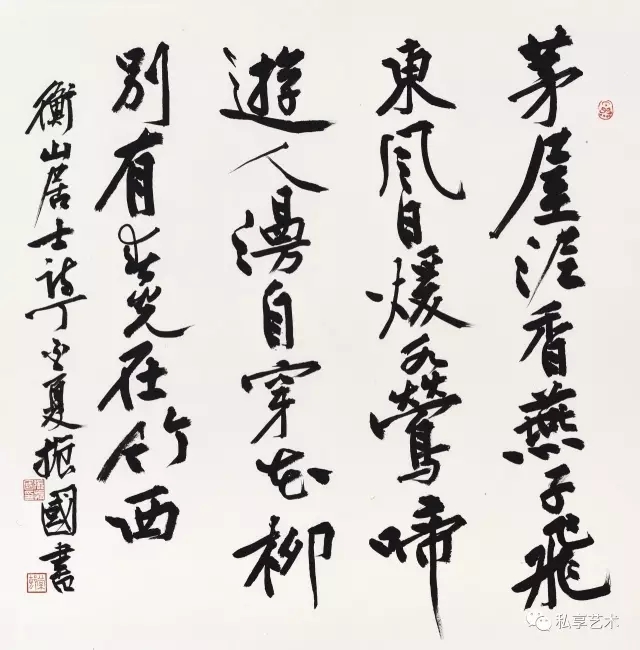 茅屋泥香燕子飛
東風日煖鶯啼
遊人漫自穿花柳
別有春光在竹西
衡山居士詩丁夏振國書
私享艺术